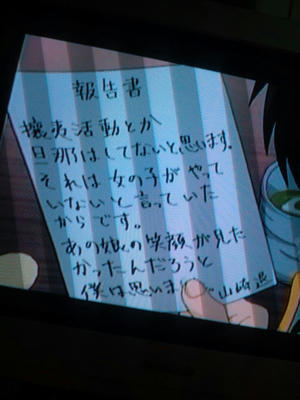 報告書
攘夷活動とか
旦那はしてないと思います。
それは女の子がやって
いないと言っていた
からです。
あの娘の笑顔が見た
かったんだろうと
僕は思います
山崎退